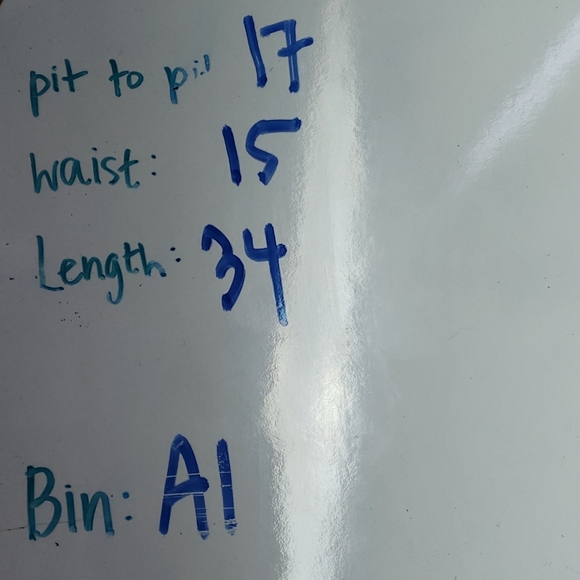 pit to pit 17
waist: 15
Length: 34
Bin: A1